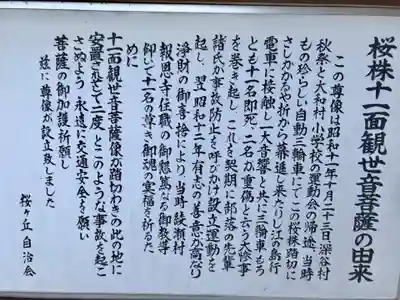 桜株十一面観世音菩薩の由来
この尊像は昭和十一年十月二十三日深谷村
秋祭と大和村小学校の運動会の帰途、当時
もの珍らしい自動三輪車にてこの桜株踏切に
さしかかるや折から驀進し来たりし江の島行
電車に接触し一大音響と共に三輪車もろ
とも十一名即死、二名が重傷と云う大惨事
を巻き起し、これを契期に部落の先輩
諸氏が事故防止を呼びかけ設立運動を
起し、翌昭和十二年有志の善意が高なり
浄財の御喜捨により、当時綾瀬村
報恩寺住職の御懇篤なる御教導
仰いで十一名の尊き御魂の冥福を祈るた
めに
十一面観世音菩薩像が踏切わきの此の地に
安置されまして二度とこのような事故を起こ
さぬよう永遠に交通安全を願い
菩薩の御加護祈願し
茲に尊像が設立致しました
桜ヶ丘自治会